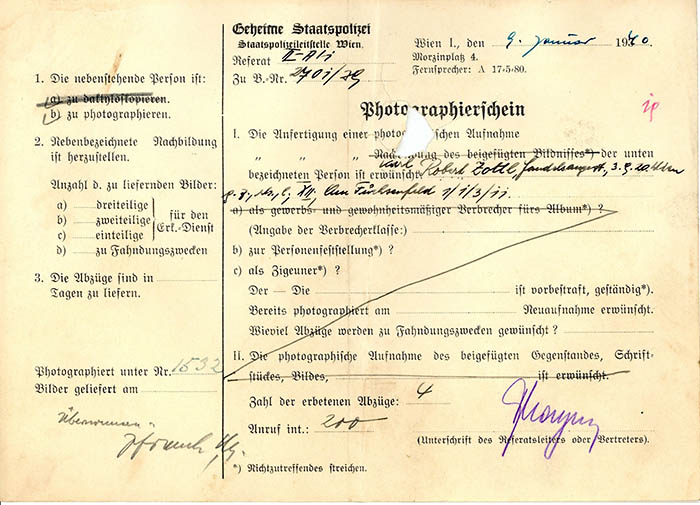 Geheime Staatspolizei
Staatspolizeileitstelle Wien.
Referat II-A1i
Zu B.-Nr. 2701/39
Wien I., den 9. Januar 1940.
Morzinplatz 4.
Fernsprecher: A 17-5-80.
1. Die nebenstehende Person ist:
a) zu daktyloskopieren.
b) zu photographieren.
2. Nebenbezeichnete Nachbildung
ist herzustellen.
Anzahl d. zu liefernden Bilder:
a) dreiteilige
b) zweiteilige
c) einteilige
für den
Erk.-Dienst
d) zu Fahndungszwecken
3. Die Abzüge sind in
Tagen zu liefern.
Photographiert unter Nr. 1532
Bilder geliefert am
Photographierschein
I. Die Anfertigung einer photographischen Aufnahme
" " " Nachbildung des beigefügten Bildnisses*) der unten
bezeichneten Person ist erwünscht. Karl Robert Zoltl,
XII, Am Fuchsenfeld 1/1/3/11.
a) als gewerbs- und gewohnheitsmäßiger Verbrecher fürs Album*) ?
(Angabe der Verbrecherklasse:)
b) zur Personenfeststellung*) ?
c) als Zigeuner*) ?
Der — Die ist vorbestraft, geständig*).
Bereits photographiert am Neuaufnahme erwünscht.
Wieviel Abzüge werden zu Fahndungszwecken gewünscht ?
II. Die photographische Aufnahme des beigefügten Gegenstandes, Schrift-
stückes, Bildes, ist erwünscht.
Zahl der erbetenen Abzüge: 4
Anruf int.: 200
(Unterschrift des Referatsleiters oder Vertreters).
*) Nichtzutreffendes streichen.